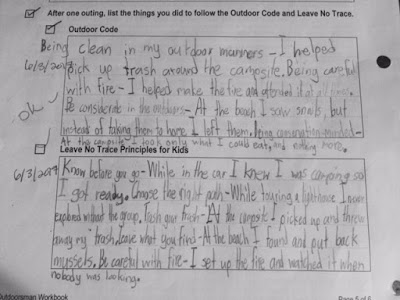 After one outing, list the things you did to follow the Outdoor Code and Leave No Trace.
Outdoor Code
Being clean in my outdoor manners - I helped
6/3/20 pick up trash around the campsite. Being careful
with fire - I helped make the fire and attended it at all times.
ok Be considerate in the outdoors - At the beach I saw snails, but
instead of taking them to home I left them. Bring conservation minded -
At the campsite I took only what I could eat, and nothing more.
Leave No Trace Principles for Kids
6/3/20 Know before you go - While in the car I knew I was camping so
I got ready. Choose the right path - While touring a lighthouse I never
explored without the group. Trash your trash - At the campsite I picked up and threw
away my trash. Leave what you find - At the beach I found and put back
mussels. Be careful with fire - I set up the fire and watched it when
nobody was looking.
utdoorsman Workbook
Page 5 of 6